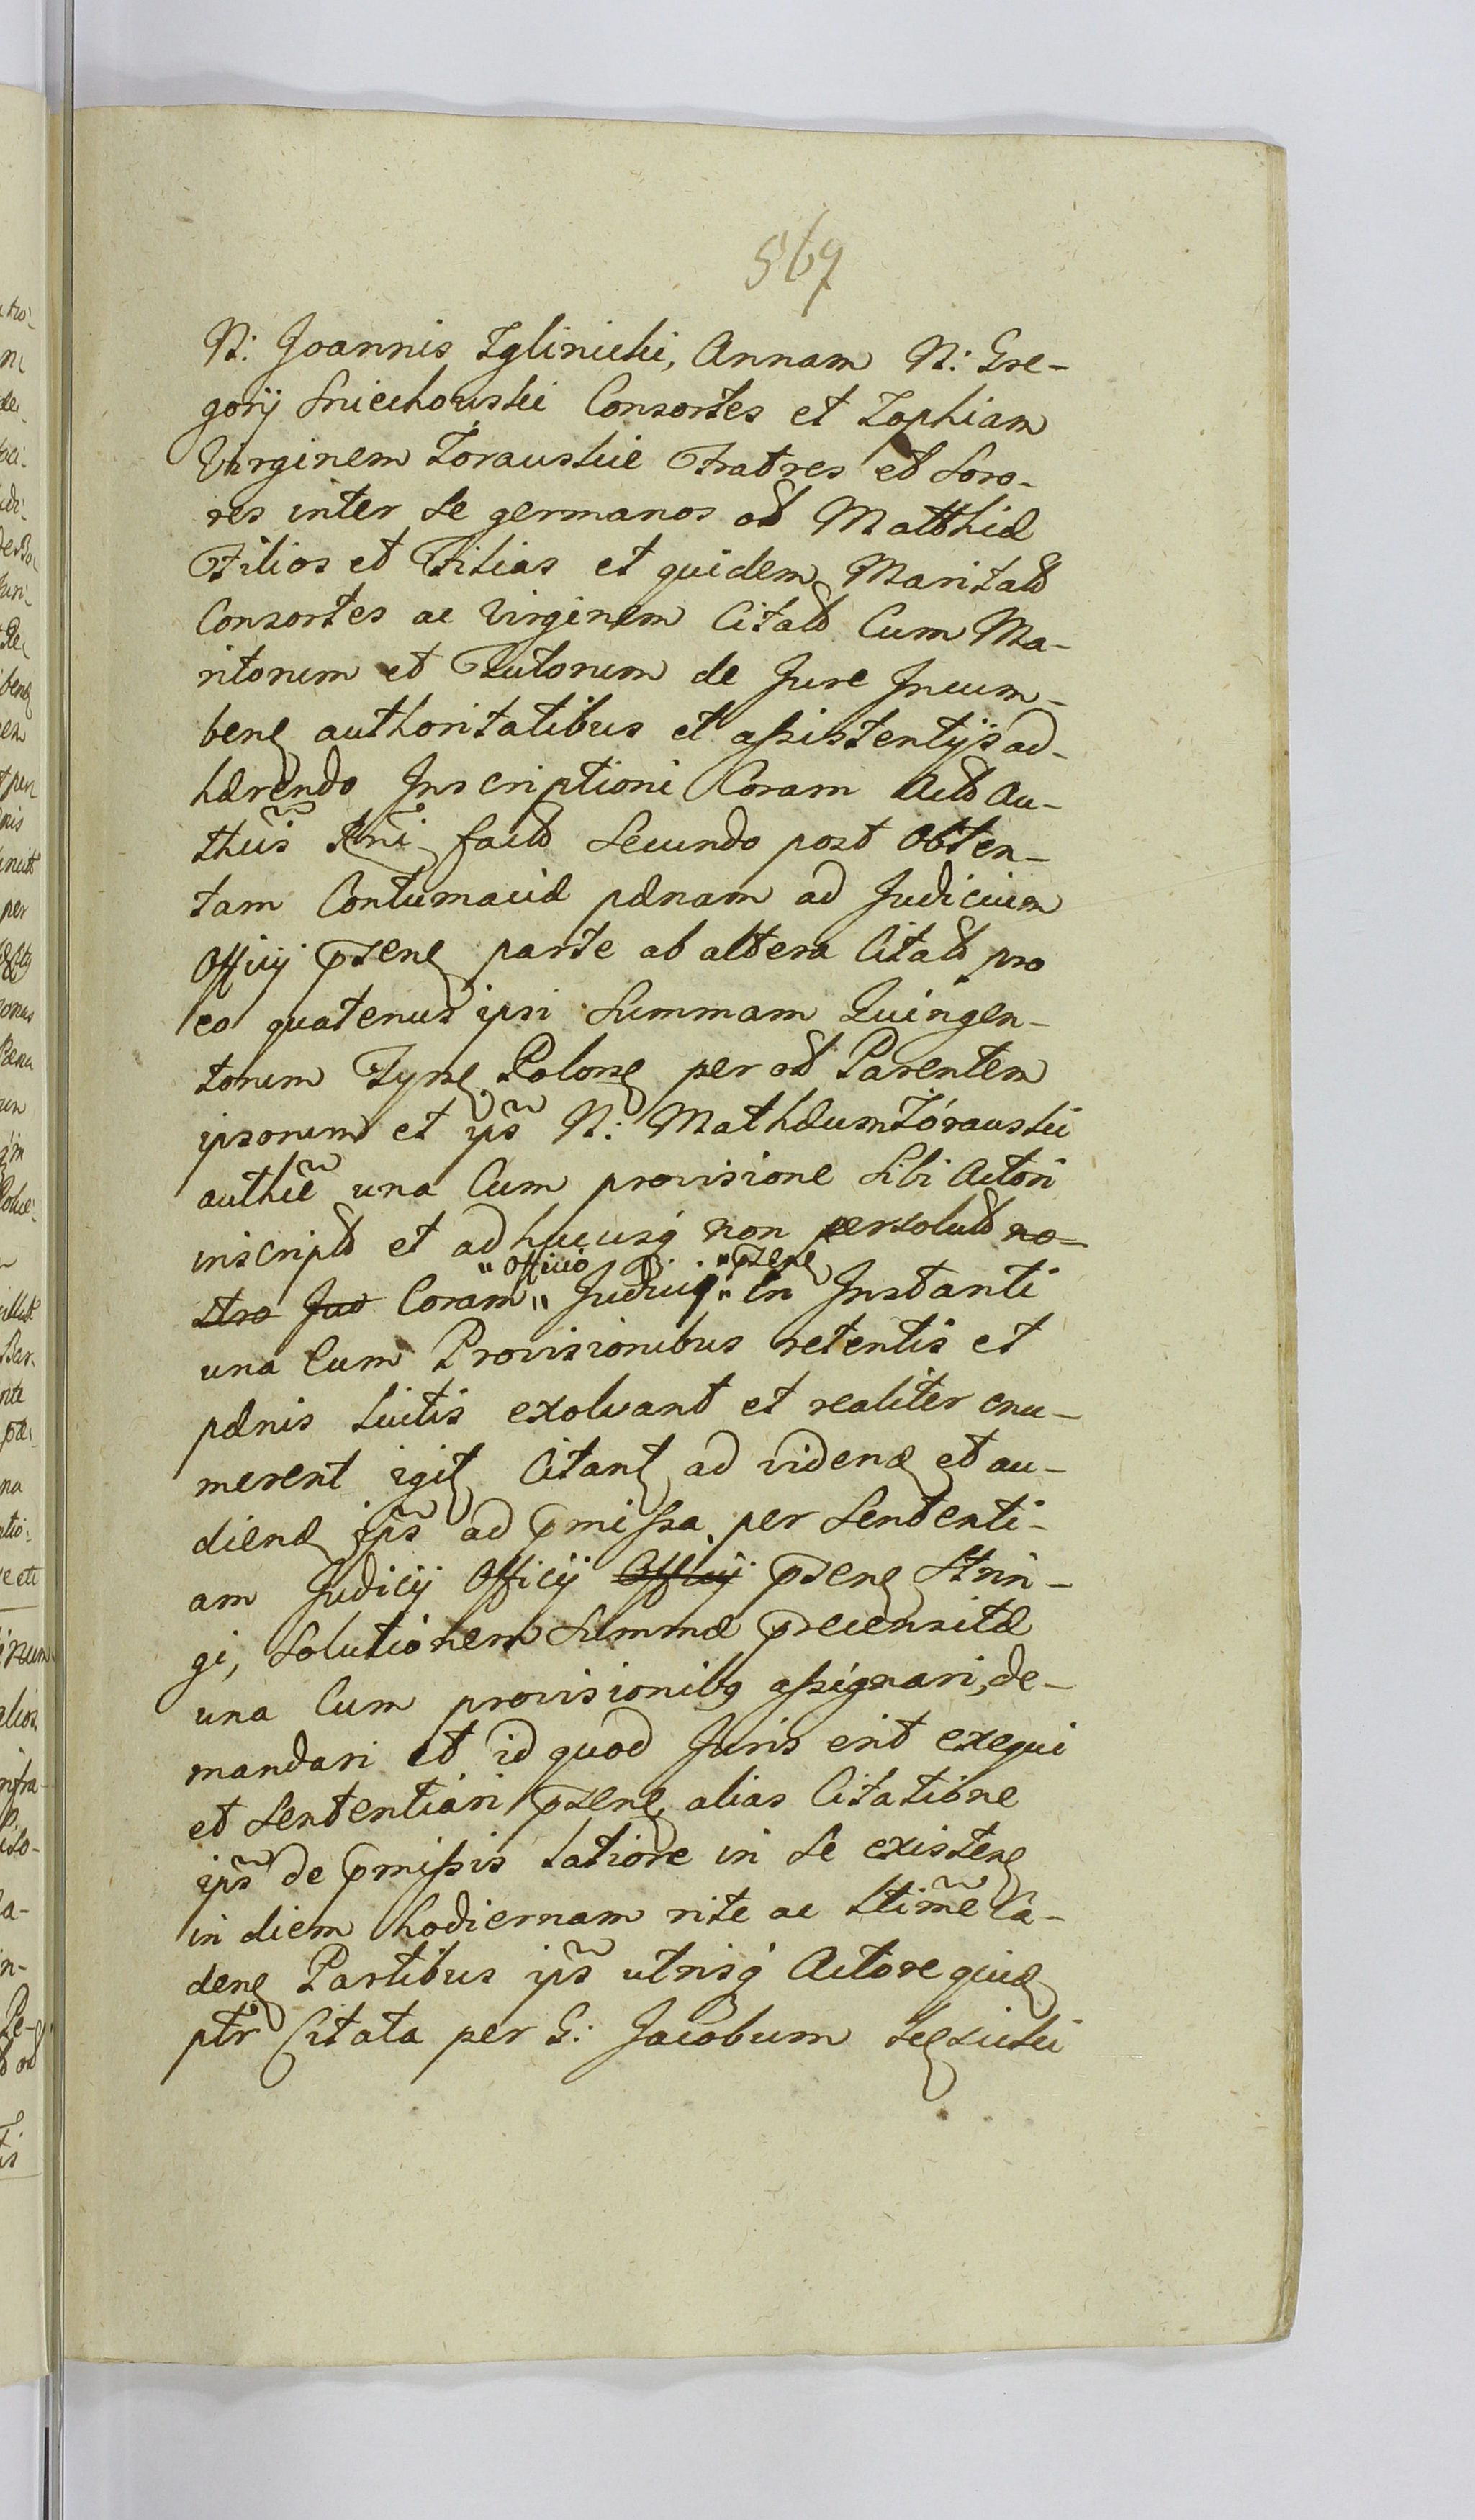 567
N: Joannis Zglinicki, Annam N: Gre-
gorij Sniechowski Consortes et Zophiam
Virginem Zorawskie Fratres et Soro-
res inter se germanos olt Matthiæ
Filios et Filias et quidem Maritalt
Consortes ac Virginem Citalt Cum Ma-
ritorum et Tutorum de Jure Incum-
ben authoritatibus et assistentijs ad-
hærendo Inscriptioni Coram Actlt Au-
thcis facto Secundo post Obten-
tam Contumaciæ pænam ad Judicium
Officij pnten parte ab altera Citatt pro
eo quatenus ipsi Summam Quingen-
torum Tynf Polon per olt Parentem
ipsorum et ips N: Mathæum Zórawski
authce una Cum provisione Sibi Actori
inscriptt et adhucusq non persolutt no-
"Officio "pnten
stro Jud Coram " Judicij " in Instanti
una Cum Provisionibus retentis et
pænis Luitis exolvant et realiter enu-
merent igit Citant ad videnđ et au-
dienđ ips ad pmissa per Sententi-
am Judicij Officij Officij pnten Strin-
gi, Solutionem Summæ precensitæ
una Cum provisionibq assignari, de-
mandari et id quod Juris erit exequi
et Sententiari pnten alias Citatione
ips de pmissis latiore in se existen
in diem hodiernam rite ac ltime Ca-
den Partibus ips utrisq Actore quid
ptr Citata per G: Jacobum